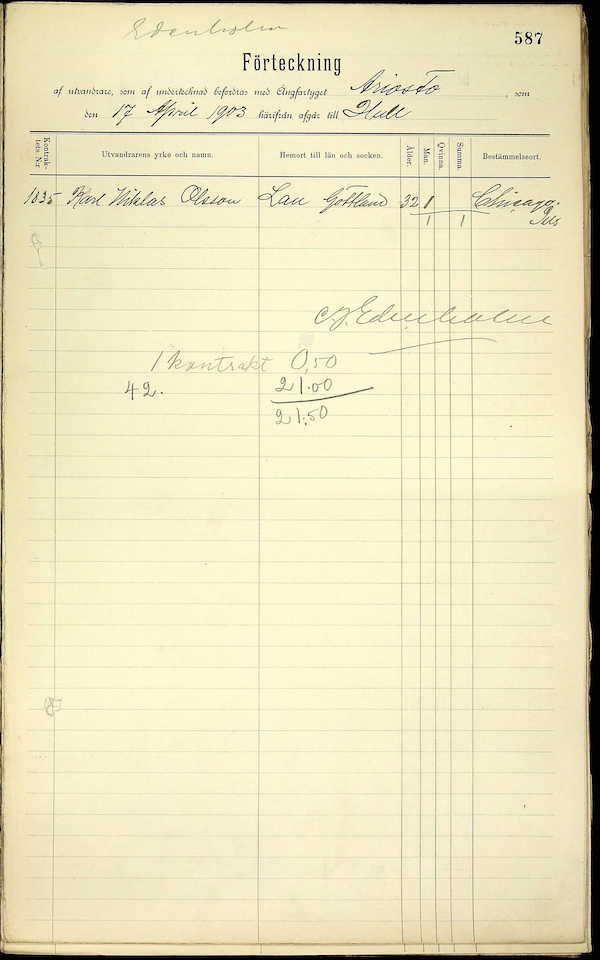 Edenholm
587
Förteckning
af utvandrare, som af undertecknad befordras med Ångfartyget Ariosto, som
den 17 April 1903 härifrån afgår till Hull
Kontrak-
tets N:r
Utvandrarens yrke och namn.
Hemort till län och socken.
Ålder.
Man.
Qvinna.
Summa.
Bestämmelseort.
1835 Karl Niklas Olsson Lau Gottland 32 1 Chicago.
1 1 Ills
C.J. Edenholm
1 kontrakt 0,50
42. 21.00
21,50